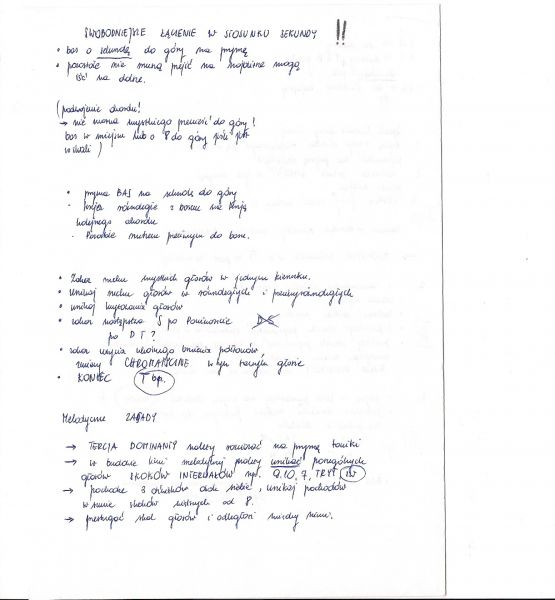 SWOBODNIEJSZE ŁĄCZENIE W STOSUNKU SEKUNDY !!
• bas o sekundę do góry na prymę
• pozostałe nie muszą przejść na najbliższe mogą
iść na dalsze.
(podwojenie akordu!
→ nie można wszystkiego przenieść do góry!
bas w miejscu lub o 8 do góry jeśli jest
w skali)
• pryma BAS na sekundę do góry
• tercja równolegle z basem na tercję
kolejnego akordu
• Pozostałe ruchem przeciwnym do basu.
• Zakaz ruchu wszystkich głosów w jednym kierunku.
• unikaj ruchu głosów w równoległych i przeciwrównoległych
• unikaj krzyżowania głosów
• zakaz następstwa S po Dominancie D S
po D T ?
• zakaz użycia ukośnego brzmienia półtonów,
zmiany CHROMATYCZNE w tym samym głosie
• KONIEC T
Melodyczne ZASADY
→ TERCJA DOMINANTY należy rozwiązać na prymę toniki
→ w budowie linii melodycznej należy unikać poszczególnych
głosów SKOKÓW INTERWAŁÓW np. 9, 10, 7, TRYT
→ pochodne 3 obok siebie, unikaj pochodów
w sumie skoków większych od 8.
→ przestrzegać skal głosów i odległości między nimi.